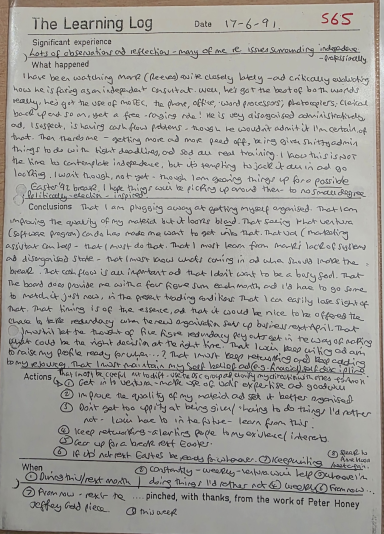 The Learning Log Date 17-6-91 S65
Significant experience
Lots of observations and reflection - many of me re issues surrounding independence
- professionally
What happened
I have been watching Mark (Reeves) quite closely lately - and critically evaluating
how he is faring as an independent consultant. Well, he's got the best of both worlds
really: he's got the use of MOTEC, the phone, office, word processors, photocopiers, clerical
back up and so on, yet a free-ranging role. He is very disorganised administratively
and, I suspect, is having cash flow problems - though he wouldn't admit it I'm certain of
that. Then there's me - getting more and more peed off, being given shitty admin
things to do with tight deadlines, and sod all real training. I know this is not
the time to contemplate independence, but it's tempting to jack it all in and go
looking. I won't though, not yet - though I am gearing things up for a possible
Easter '92 break. I hope things will be picking up around then - to no small degree
politically - election - inspired.
Conclusions That I am plugging away at getting myself organised. That I am
improving the quality of my material but it looks bland. That seeing that Ventura
(software program) and so has made me want to get into that. That Val (marketing
assistant) can help - that I must do that. That I must learn from Mark's lack of systems
and disorganised state - that I must know what's coming in and when should I make the
break. That cash flow is all important and that I don't want to be a busy fool. That
the board does provide me with a four figure sum each month and I'd have to go some
to match it just now, in the present trading conditions. That I can easily lose sight of
that. That timing is of the essence, and that it would be nice to be offered the
chance to take redundancy when the new organisation sets up business next April. That
I mustn't let the thought of five figure redundancy pay out get in the way of making
what could be the right decision at the right time. That I can keep writing and aim
to raise my profile ready for when...? That I must keep networking and keep adding
to my resources. That I must maintain my self
Actions
① Get in to Ventura - make use of Val's expertise and goodwill
② Improve the quality of my material and get it better organised
③ Don't get too uppity at being given / having to do things I'd rather
not - I won't have to in the future - learn from this.
④ Keep networking - alerting people to my existence / interests
⑤ Gear up for a break next Easter.
⑥ If it's not Easter be ready for whenever. ⑦ Keep writing
When
① During this/next month
doing things I'd rather not ④ weekly ⑤ From now...
⑦ From now - next is the .... pinched, with thanks, from the work of Peter Honey
Jeffrey Gold piece ⑧ this week